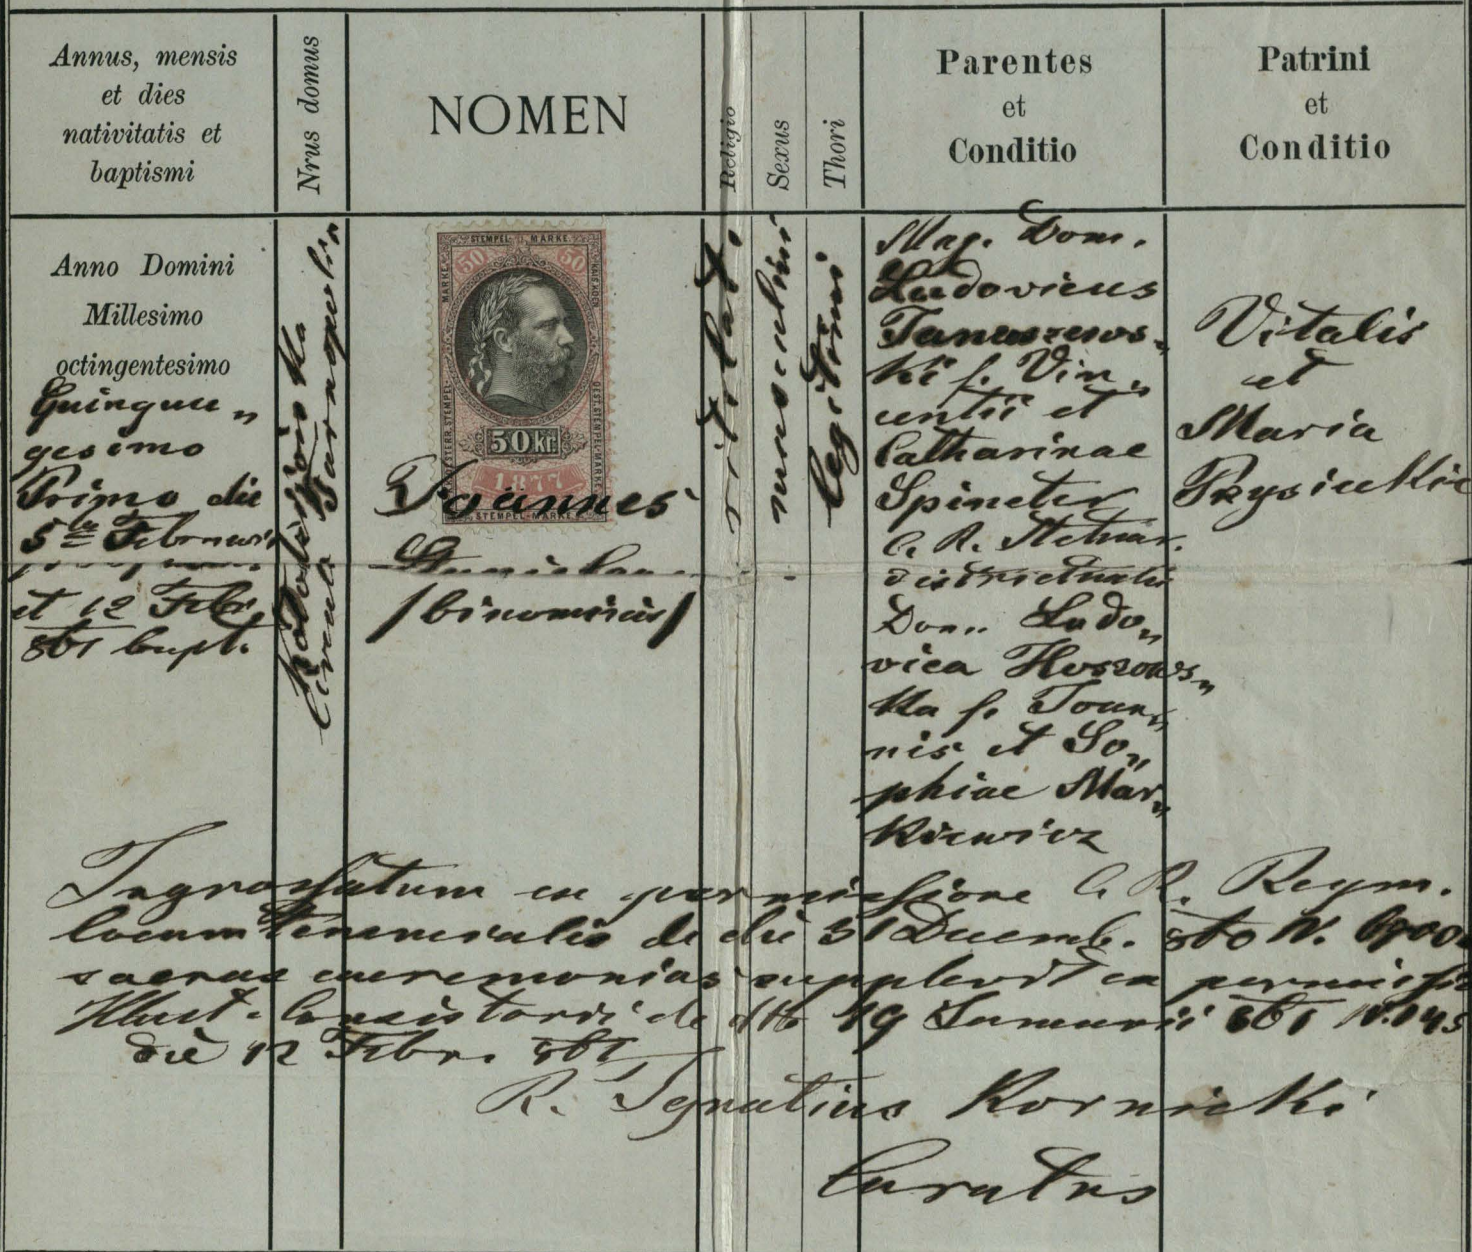 Annus, mensis
et dies
nativitatis et
baptismi
Nrus domus
NOMEN
Religio
Sexus
Thori
Parentes
et
Conditio
Patrini
et
Conditio
Anno Domini
Millesimo
octingentesimo
Quinqua„
gesimo
Primo die
5ta Februarii
et 12 Febr.
861 bapt.
STEMPEL-MARKE
50 50
50 kr.
1877
STEMPEL-MARKE
Joannes
Stanislaus
/binominis/
rit. lat.
masculini
legitimi
Mag. Dom.
Ludovicus
Januszews„
ki f. Vin„
centii et
Catharinae
Spineter
C. R. Actuar.
districtualis
Dom. Ludo„
vica Hoszows„
ka f. Joan„
nis et So„
phiae Mar„
kiewicz
Vitalis
et
Maria
Ingrossatum ex permissione C. R. Regim.
locumtenentialis de die 31 Decemb. 860 N.
sacras caeremonias supplevit ex
Illust. Consistorii de dto 19 Januarii 861 N.
die 12 Febr. 861
R. Ignatius Kornicki
Curatus